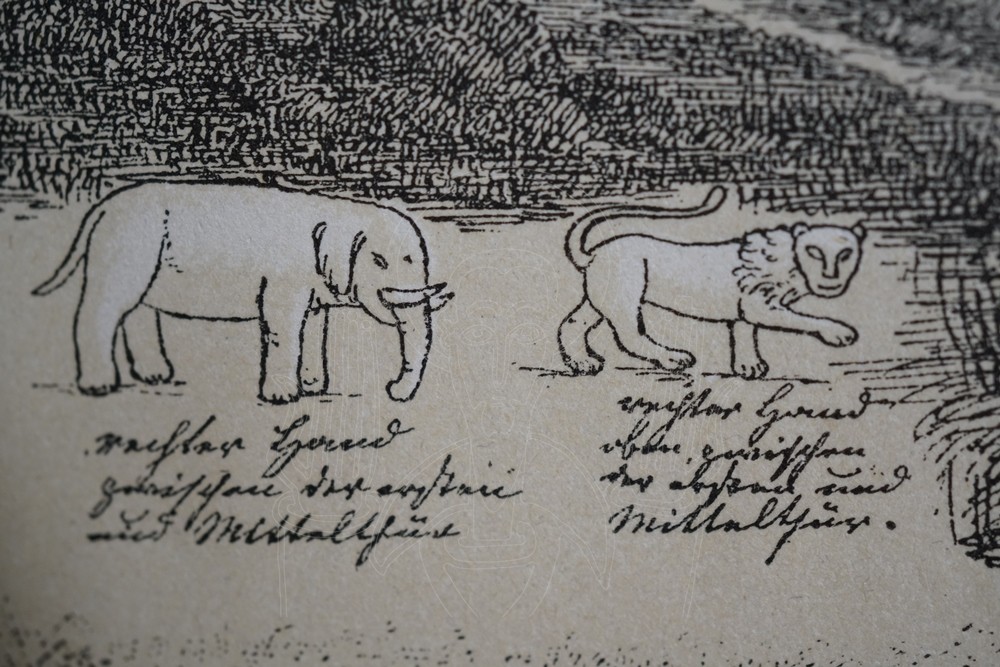 rechter Hand
zwischen der ersten
und Mittelthür
rechter Hand
oben, zwischen
der ersten und
Mittelthür.